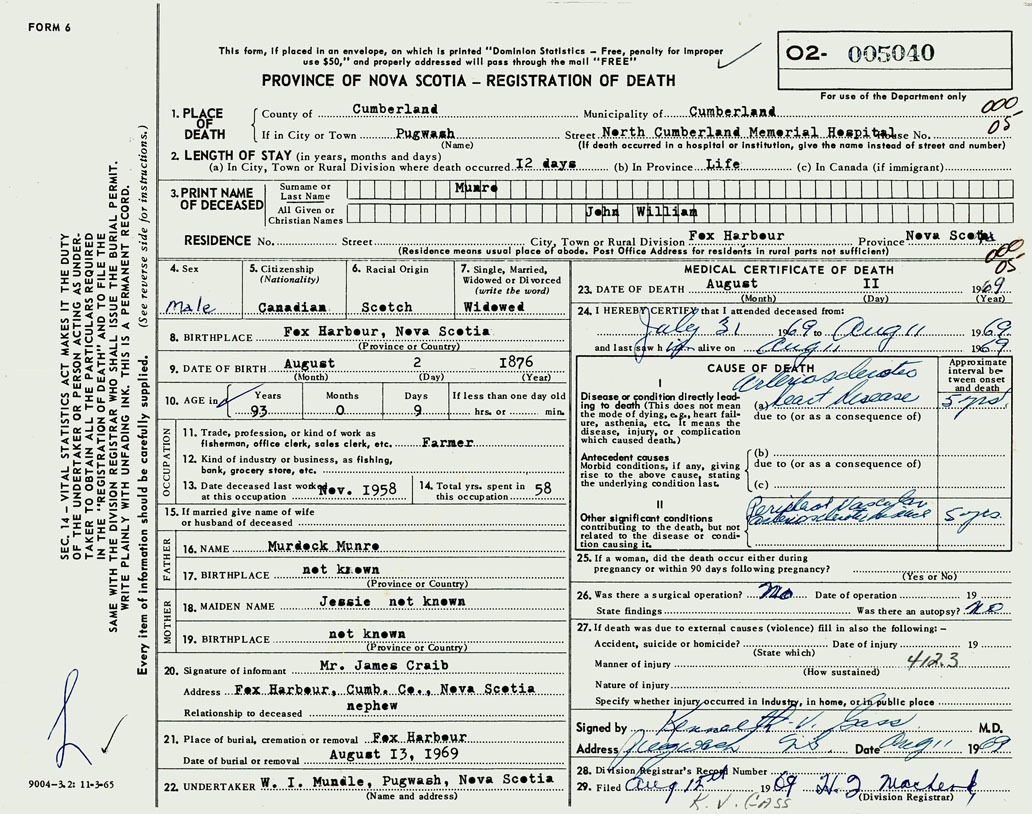 FORM 6
This form, if placed in an envelope, on which is printed "Dominion Statistics – Free, penalty for improper
use $50," and properly addressed will pass through the mail "FREE"
PROVINCE OF NOVA SCOTIA – REGISTRATION OF DEATH
O2- 005040
For use of the Department only
000
05
1. PLACE OF DEATH
County of Cumberland Municipality of Cumberland
If in City or Town Pugwash Street North Cumberland Memorial Hospital House No.
(Name) (If death occurred in a hospital or institution, give the name instead of street and number)
2. LENGTH OF STAY (in years, months and days)
(a) In City, Town or Rural Division where death occurred I2 days (b) In Province Life (c) In Canada (if immigrant)
3. PRINT NAME OF DECEASED
Surname or Last Name Munro
All Given or Christian Names John William
RESIDENCE No. Street City, Town or Rural Division Fox Harbour Province Nova Scotia
(Residence means usual place of abode. Post Office Address for residents in rural parts not sufficient)
000
05
4. Sex
Male
5. Citizenship
(Nationality)
Canadian
6. Racial Origin
Scotch
7. Single, Married,
Widowed or Divorced
(write the word)
Widowed
8. BIRTHPLACE Fox Harbour, Nova Scotia
(Province or Country)
9. DATE OF BIRTH August 2 I876
(Month) (Day) (Year)
10. AGE in Years Months Days If less than one day old
93 0 9 hrs. or min.
OCCUPATION
11. Trade, profession or kind of work as
fisherman, office clerk, sales clerk, etc. Farmer
12. Kind of industry or business, as fishing,
bank, grocery store, etc.
13. Date deceased last worked
at this occupation Nov. I958
14. Total yrs. spent in
this occupation 58
15. If married give name of wife
or husband of deceased
FATHER
16. NAME Murdock Munro
17. BIRTHPLACE not known
(Province or Country)
MOTHER
18. MAIDEN NAME Jessie not known
19. BIRTHPLACE not known
(Province or Country)
20. Signature of informant Mr. James Craib
Address Fox Harbour, Cumb. Co., Nova Scotia
Relationship to deceased nephew
21. Place of burial, cremation or removal Fox Harbour
Date of burial or removal August I3, I969
22. UNDERTAKER W. I. Mundle, Pugwash, Nova Scotia
(Name and address)
MEDICAL CERTIFICATE OF DEATH
23. DATE OF DEATH August II 1969
(Month) (Day) (Year)
24. I HEREBY CERTIFY that I attended deceased from:
July 31 1969 to Aug 11 1969
and last saw him alive on Aug 11 1969
CAUSE OF DEATH
Approximate interval between onset and death
I
Disease or condition directly lead-
ing to death (This does not mean
the mode of dying, e.g., heart fail-
ure, asthenia, etc. It means the
disease, injury, or complication
which caused death.)
Arteriosclerotic
(a) Heart Disease 5 yrs
due to (or as a consequence of)
Antecedent causes
Morbid conditions, if any, giving
rise to the above cause, stating
the underlying condition last.
(b)
due to (or as a consequence of)
(c)
II
Other significant conditions
contributing to the death, but not
related to the disease or condi-
tion causing it.
Vascular
5 yrs.
25. If a woman, did the death occur either during
pregnancy or within 90 days following pregnancy?
(Yes or No)
26. Was there a surgical operation? No Date of operation 19
State findings Was there an autopsy? No
27. If death was due to external causes (violence) fill in also the following: –
Accident, suicide or homicide? Date of injury 19
(State which)
Manner of injury 412.3
(How sustained)
Nature of injury
Specify whether injury occurred in Industry, in home, or in public place
Signed by Kenneth V. Gass M.D.
Address Pugwash N.S. Date Aug 11 1969
28. Division Registrar's Record Number
29. Filed Aug 12th 1969 H. J. MacLeod
(Division Registrar)
K. V. GASS
SEC. 14 – VITAL STATISTICS ACT MAKES IT THE DUTY
OF THE UNDERTAKER OR PERSON ACTING AS UNDER-
TAKER TO OBTAIN ALL THE PARTICULARS REQUIRED
IN THE "REGISTRATION OF DEATH" AND TO FILE THE
SAME WITH THE DIVISION REGISTRAR WHO SHALL ISSUE THE BURIAL PERMIT.
WRITE PLAINLY WITH UNFADING INK. THIS IS A PERMANENT RECORD.
Every item of information should be carefully supplied. (See reverse side for instructions.)
9004-3.2: 11-3-65